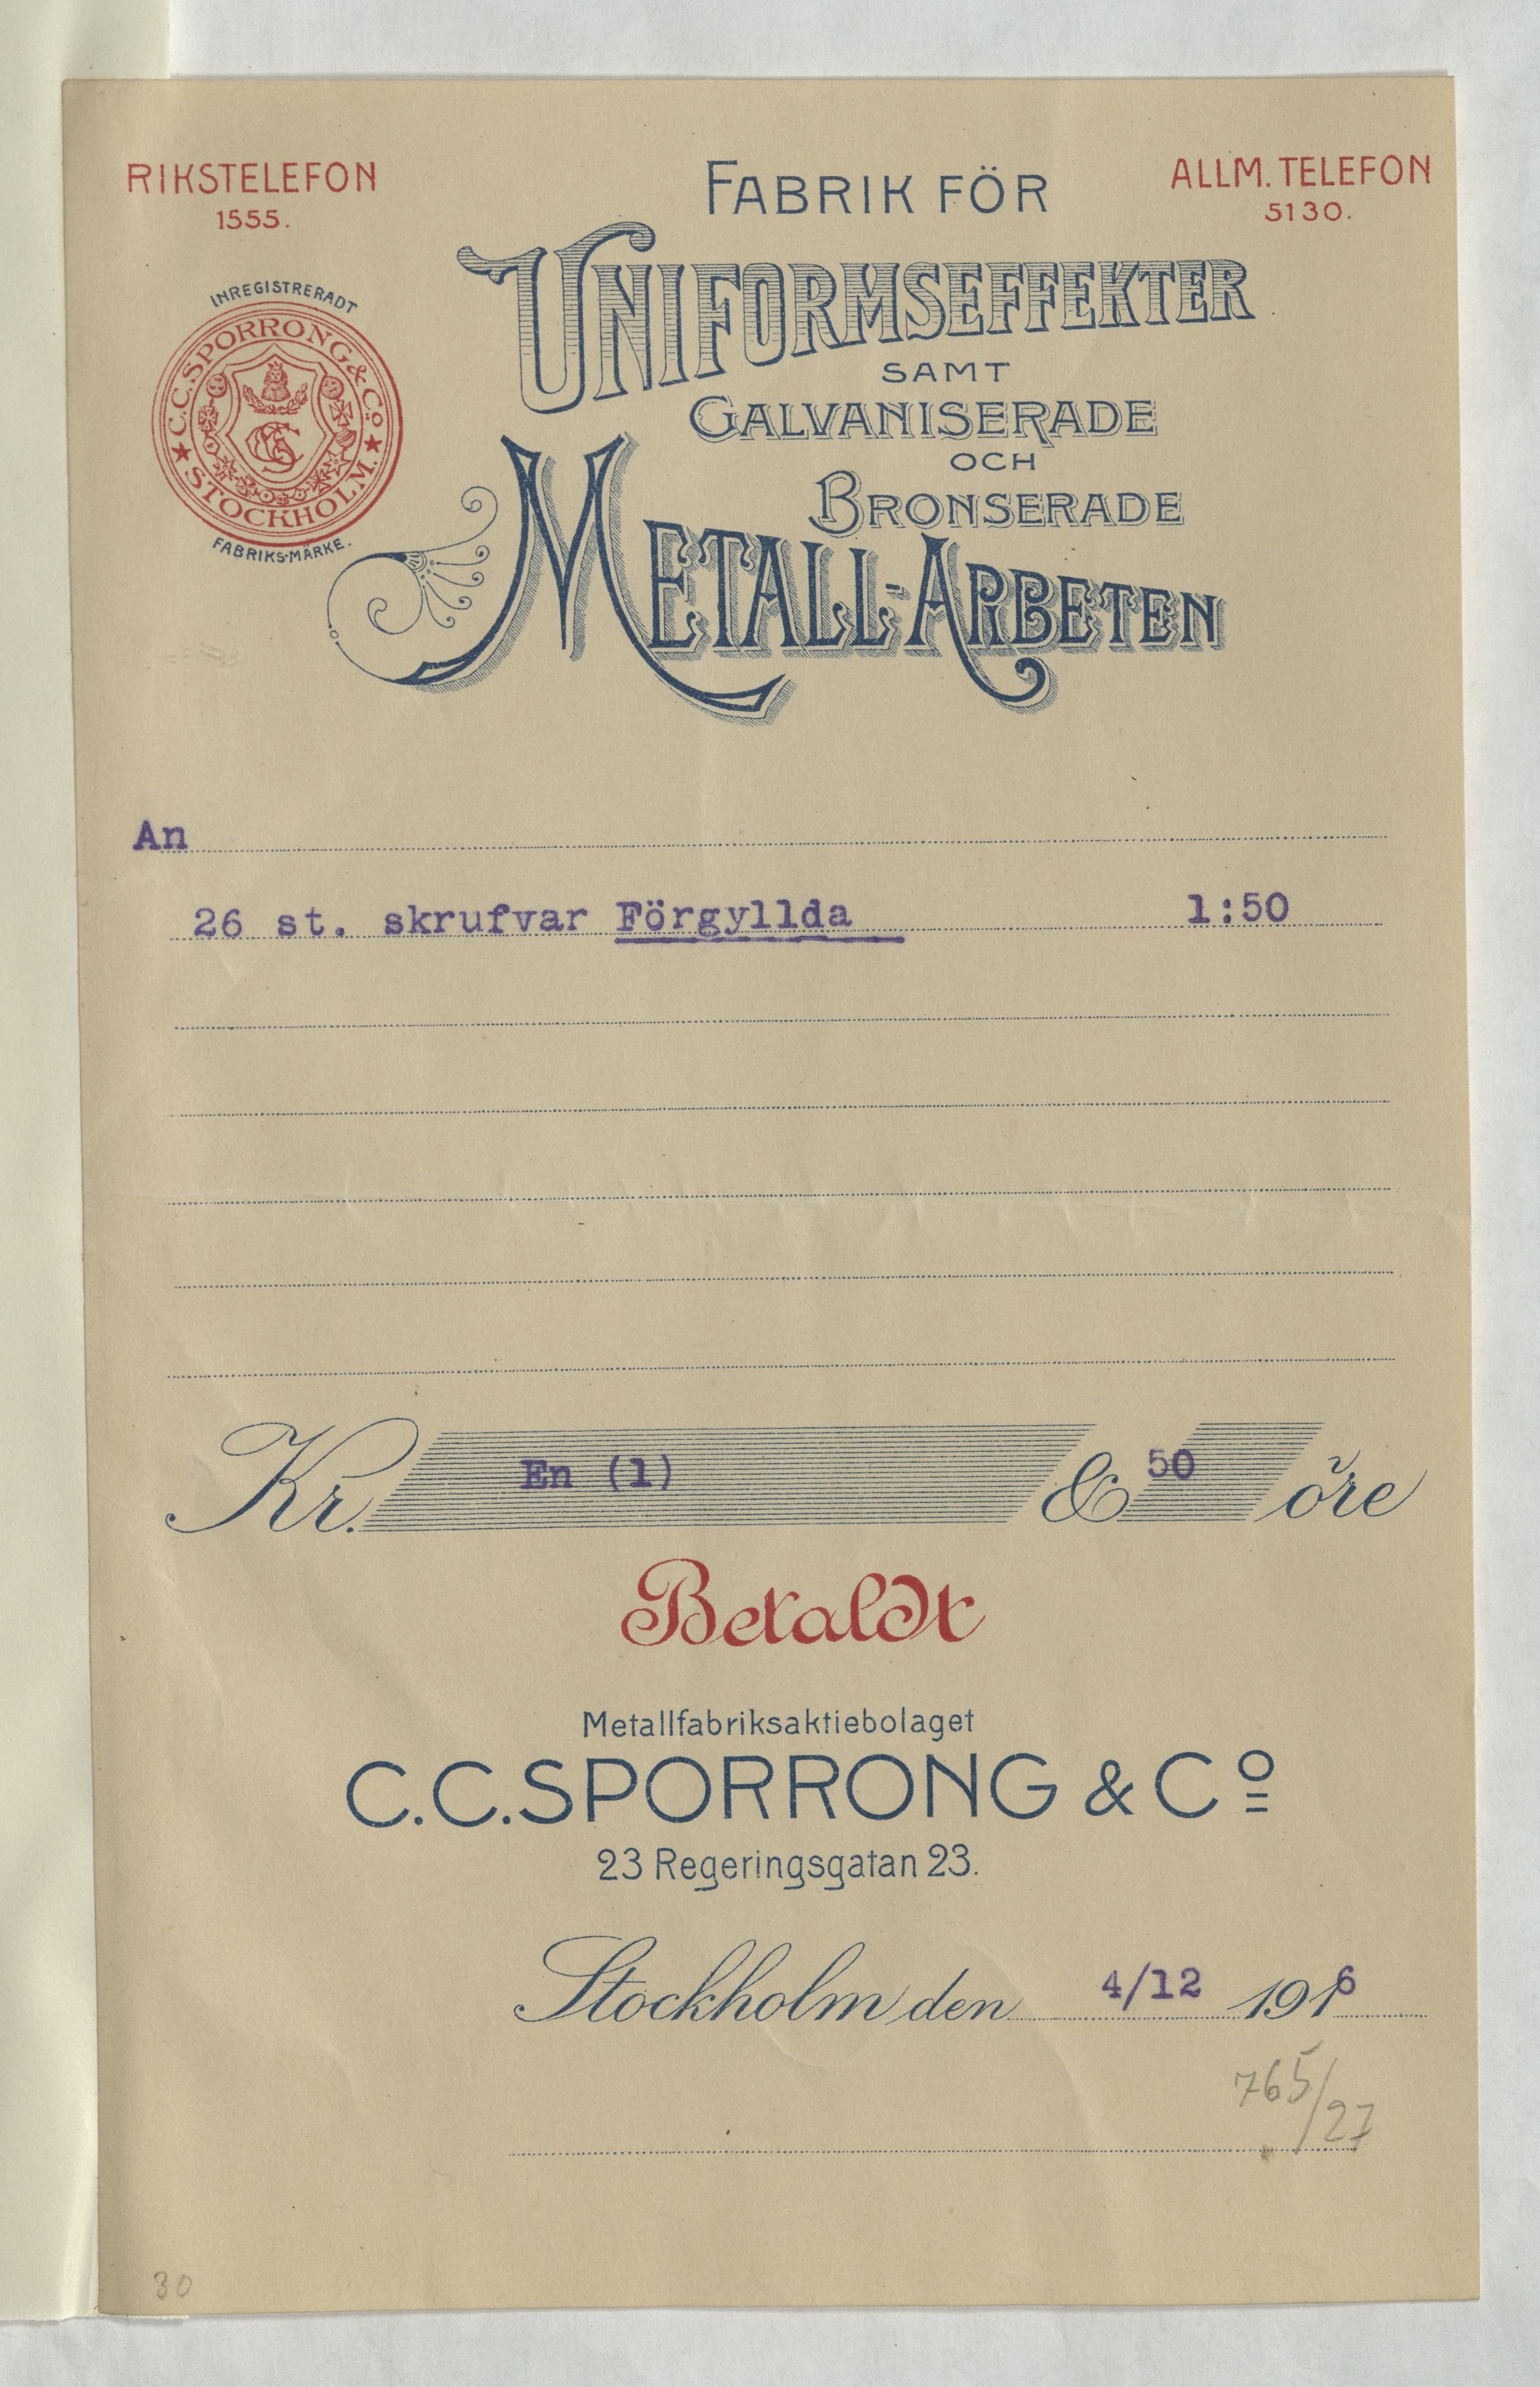 RIKSTELEFON
1555.
FABRIK FÖR
ALLM. TELEFON
5130.
UNIFORMSEFFEKTER
SAMT
GALVANISERADE
OCH
BRONSERADE
METALL-ARBETEN
INREGISTRERADT
C.C. SPORRONG & Co
STOCKHOLM.
FABRIKS-MÄRKE.
An
26 st. skrufvar Förgyllda 1:50
Kr. En (1) & 50 öre
Betaldt
Metallfabriksaktiebolaget
C.C. SPORRONG & Co
23 Regeringsgatan 23.
Stockholm den 4/12 1916
765/27
30